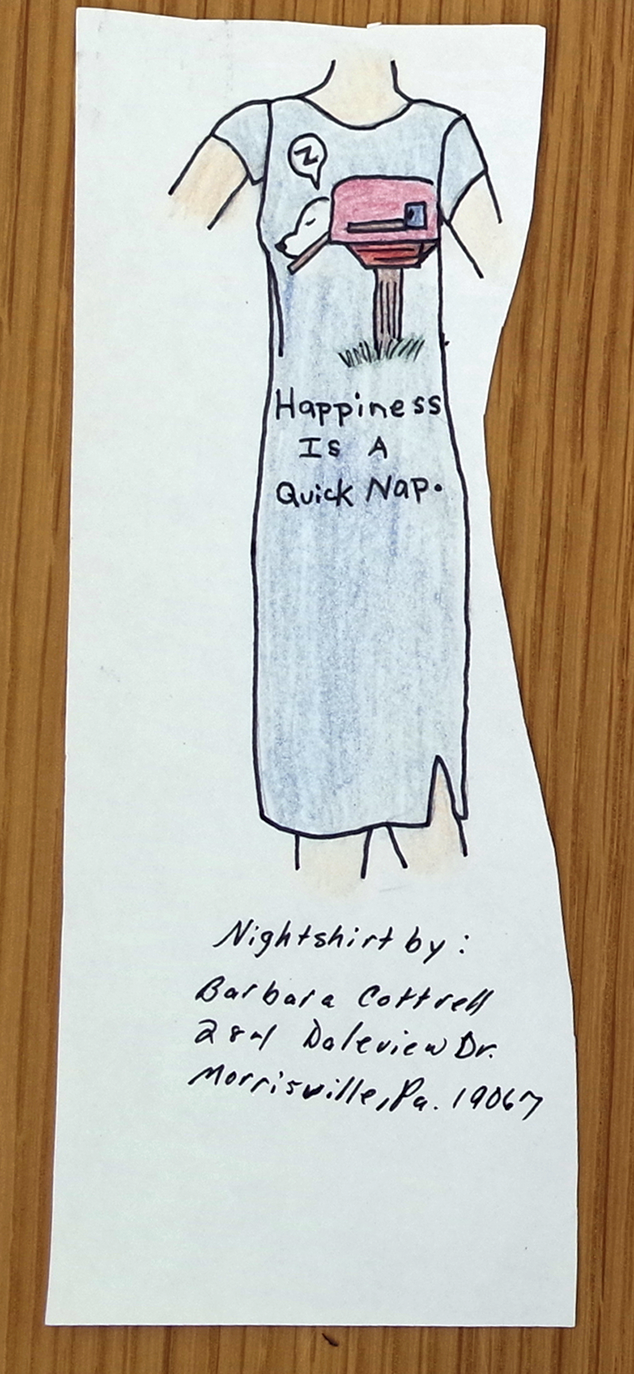 Z
Happiness
Is A
Quick Nap.
Nightshirt by:
Barbara Cottrell
284 Daleview Dr.
Morrisville, Pa. 19067